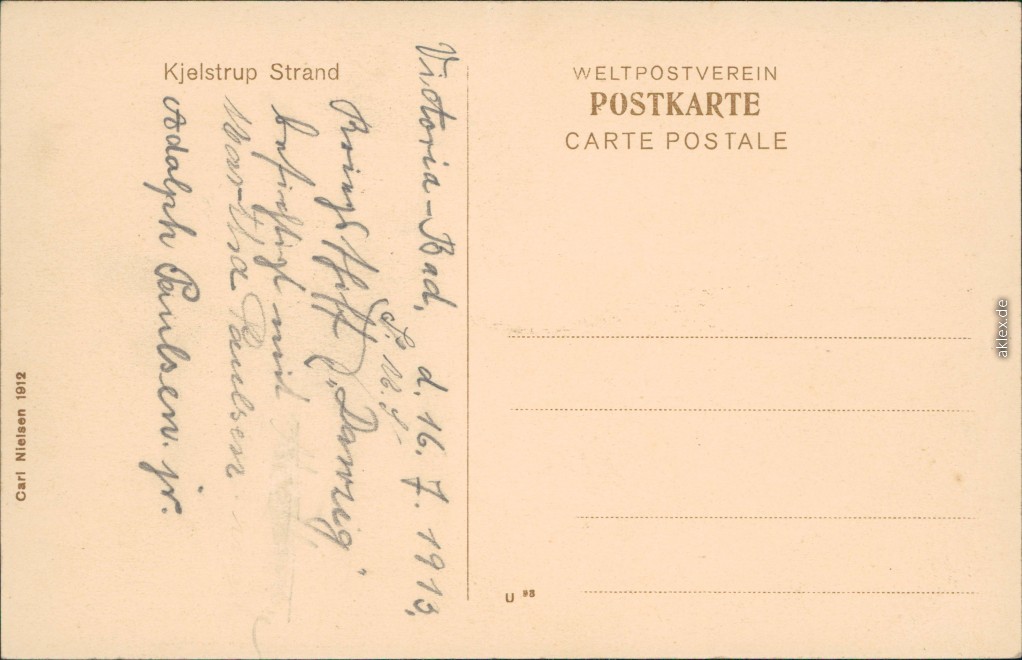 Kjelstrup Strand
WELTPOSTVEREIN
POSTKARTE
CARTE POSTALE
Victoria-Bad, d. 16. 7. 1913.
S.M.S.
Kriegsschiff „Danzig"
besichtigt mit
Martha Paulsen
Adolph Paulsen. jr.
Carl Nielsen 1912
U 93
aklex.de